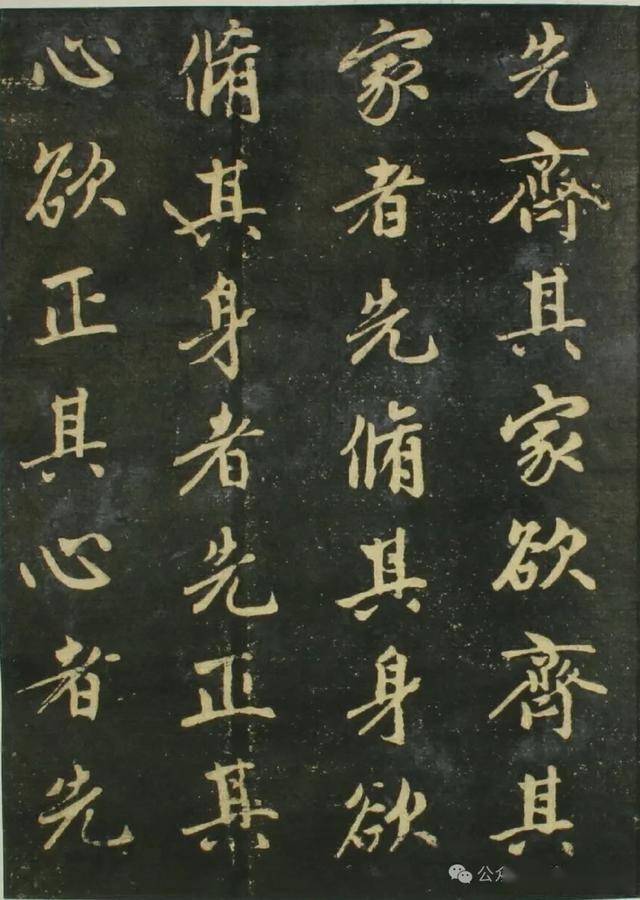 先齊其家欲齊其
家者先脩其身欲
脩其身者先正其
心欲正其心者先
公众